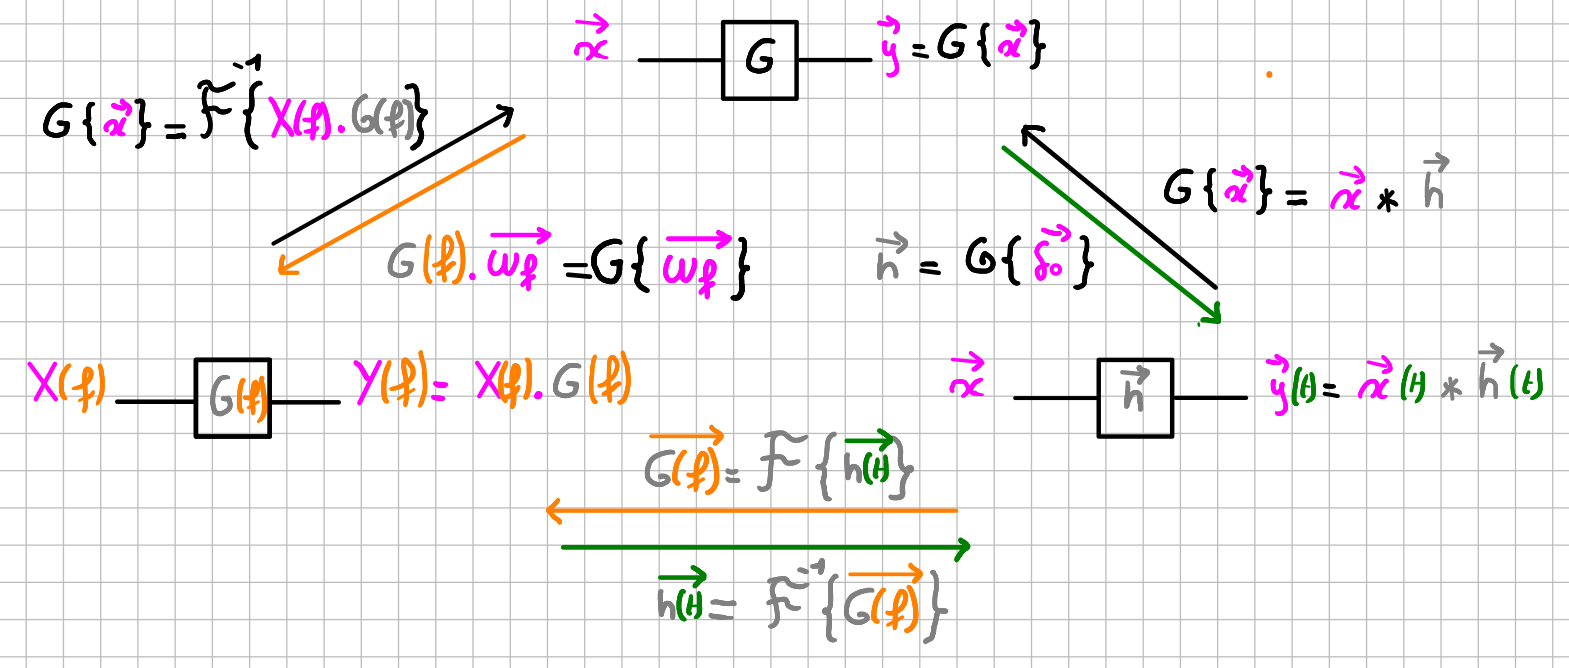 x⃗ G y⃗ = G{x⃗}
G{x⃗} = F⁻¹{X(f).G(f)}
G{x⃗} = x⃗ * h⃗
G(f).w⃗f = G{w⃗f}
h⃗ = G{δ⃗₀}
X(f) G(f) Y(f) = X(f).G(f)
x⃗ h⃗ y⃗(t) = x⃗(t) * h⃗(t)
G(f)⃗ = F{h(t)⃗}
h(t)⃗ = F⁻¹{G(f)⃗}